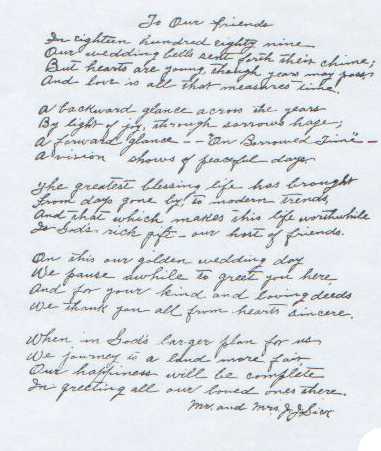 To Our friends
In eighteen hundred eighty nine
Our wedding bells sent forth their chime;
But hearts are young, though years may pass
And love is all that measures time.
A backward glance across the years
By light of joy, through sorrows haze;
A forward glance -- "On Borrowed Time" -
A vision shows of peaceful days
The greatest blessing life has brought
From days gone by, to modern trends,
And that which makes this life worthwhile
Is God's rich gift - our host of friends.
On this our golden wedding day
We pause awhile to greet you here
And for your kind and loving deeds
We thank you all from hearts sincere.
When in God's larger plan for us
We journey to a land more fair
Our happiness will be complete
In greeting all our loved ones there.
Mr. and Mrs. J. J. Sick